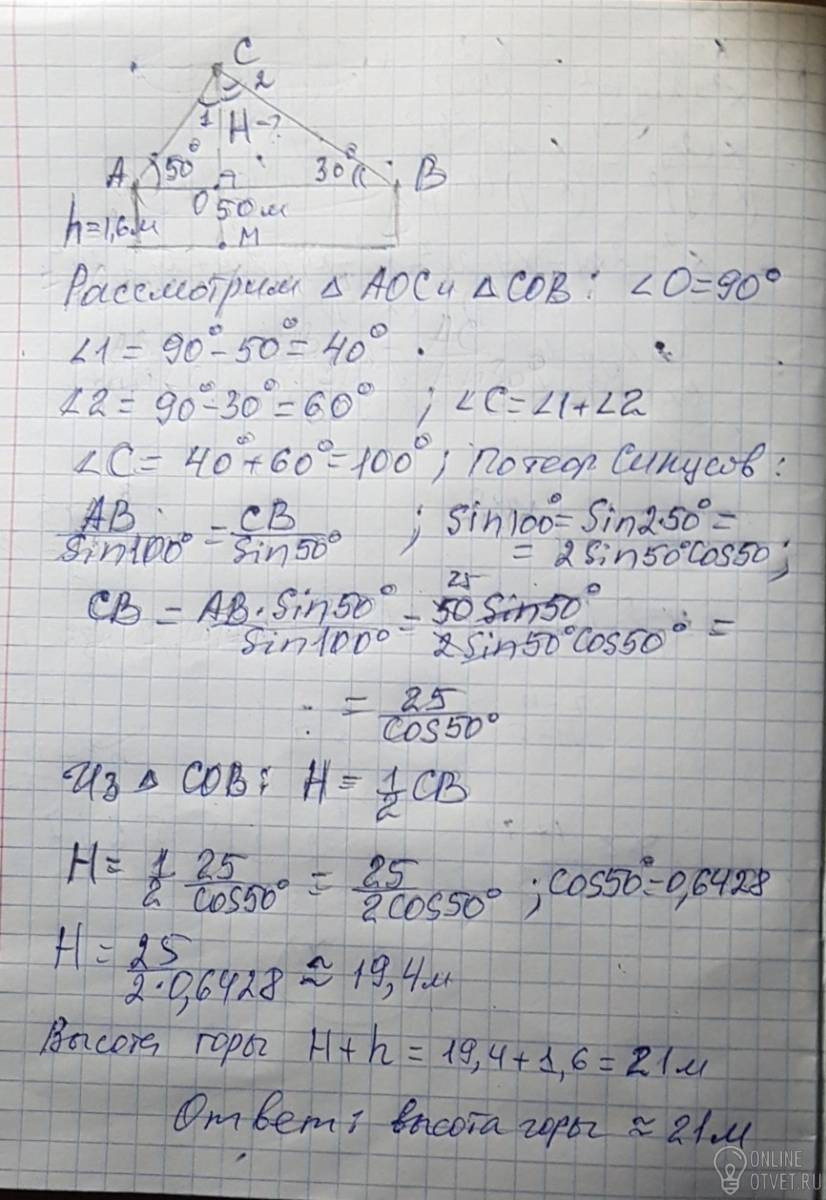 C
1 2
H-?
A 50° 30° B
O 50м
h=1,6м
М
Рассмотрим △ AOC и △ COB: ∠O=90°
∠1 = 90°-50°=40°
∠2 = 90°-30°=60° ; ∠C=∠1+∠2
∠C= 40°+60°=100°; По теор Синусов:
AB/Sin100° = CB/Sin50° ; Sin100°=Sin2·50°=
= 2Sin50°Cos50;
25
CB = AB·Sin50°/Sin100° = 50Sin50°/2Sin50°Cos50° =
= 25/Cos50°
Из △ COB: H= 1/2 CB
H= 1/2 25/Cos50° = 25/2Cos50° ; Cos50°=0,6428
H= 25/2·0,6428 ≈ 19,4м
Высота горы H+h=19,4+1,6=21м
Ответ: высота горы ≈ 21м
ONLINE
OTVET.RU